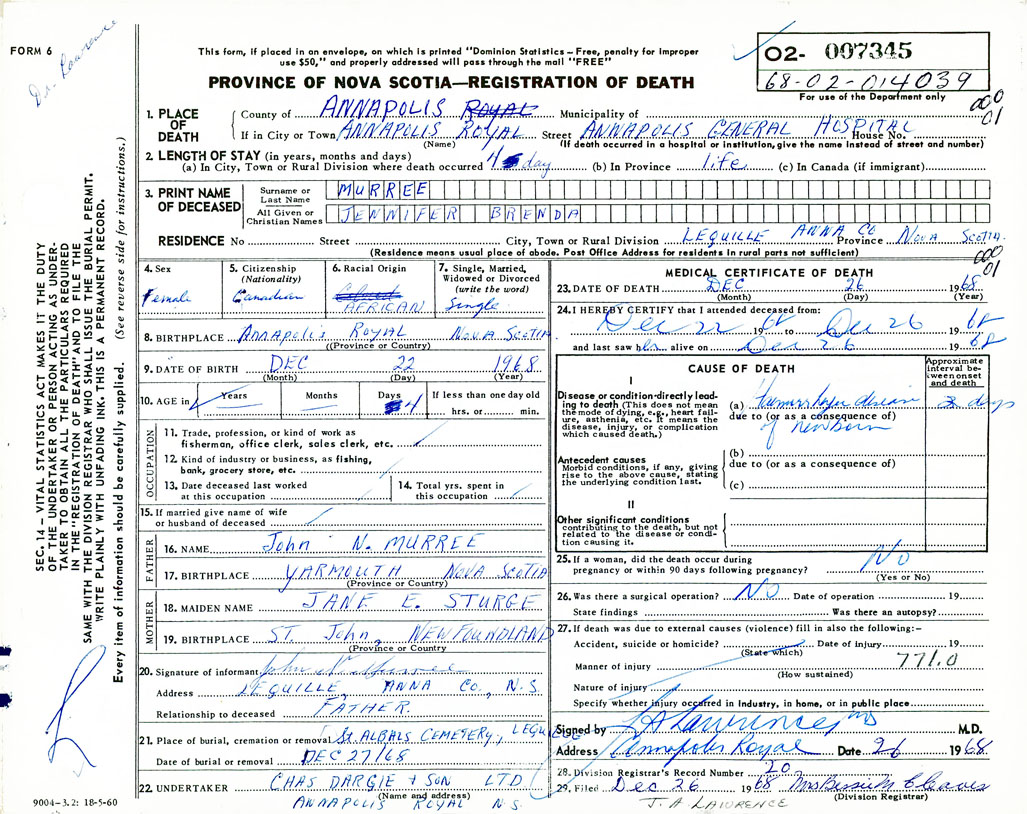 FORM 6
Dr. Lawrence
This form, if placed in an envelope, on which is printed "Dominion Statistics – Free, penalty for improper
use $50," and properly addressed will pass through the mail "FREE"
PROVINCE OF NOVA SCOTIA—REGISTRATION OF DEATH
02- 007345
68-02-014039
For use of the Department only
000
01
1. PLACE OF DEATH
County of ANNAPOLIS ROYAL Municipality of
If in City or Town ANNAPOLIS ROYAL Street ANNAPOLIS GENERAL HOSPITAL House No.
(Name) (If death occurred in a hospital or institution, give the name instead of street and number)
2. LENGTH OF STAY (in years, months and days)
(a) In City, Town or Rural Division where death occurred 4 day (b) In Province life (c) In Canada (if immigrant)
3. PRINT NAME OF DECEASED
Surname or Last Name MURREE
All Given or Christian Names JENNIFER BRENDA
RESIDENCE No Street City, Town or Rural Division LEQUILLE ANNA CO Province NOVA SCOTIA
(Residence means usual place of abode. Post Office Address for residents in rural parts not sufficient)
000
01
4. Sex
Female
5. Citizenship
(Nationality)
Canadian
6. Racial Origin
AFRICAN
7. Single, Married,
Widowed or Divorced
(write the word)
Single
8. BIRTHPLACE ANNAPOLIS ROYAL NOVA SCOTIA
(Province or Country)
9. DATE OF BIRTH DEC 22 1968
(Month) (Day) (Year)
10. AGE in
Years Months Days If less than one day old
4 hrs. or min.
OCCUPATION
11. Trade, profession, or kind of work as
fisherman, office clerk, sales clerk, etc.
12. Kind of industry or business, as fishing,
bank, grocery store, etc.
13. Date deceased last worked
at this occupation
14. Total yrs. spent in
this occupation
15. If married give name of wife
or husband of deceased
FATHER
16. NAME John N. MURREE
17. BIRTHPLACE YARMOUTH NOVA SCOTIA
(Province or Country)
MOTHER
18. MAIDEN NAME JANE E. STURGE
19. BIRTHPLACE ST. John, NEWFOUNDLAND
(Province or Country
20. Signature of informant John N. Murree
Address LEQUILLE, ANNA CO., N.S.
Relationship to deceased FATHER.
21. Place of burial, cremation or removal St. ALBALS CEMETERY, LEQUILLE
Date of burial or removal DEC 27/68
22. UNDERTAKER CHAS DARGIE & SON LTD
(Name and address)
ANNAPOLIS ROYAL N.S.
MEDICAL CERTIFICATE OF DEATH
23. DATE OF DEATH DEC 26 1968
(Month) (Day) (Year)
24. I HEREBY CERTIFY that I attended deceased from:
Dec 22 1968 to Dec 26 1968
and last saw her alive on Dec 26 1968
CAUSE OF DEATH
Approximate
interval be-
tween onset
and death
I
Disease or condition directly lead-
ing to death (This does not mean
the mode of dying, e.g., heart fail-
ure, asthenia, etc. It means the
disease, injury, or complication
which caused death.)
(a) Hemorrhagic disease 2 days
due to (or as a consequence of)
of newborn
Antecedent causes
Morbid conditions, if any, giving
rise to the above cause, stating
the underlying condition last.
(b)
due to (or as a consequence of)
(c)
II
Other significant conditions
contributing to the death, but not
related to the disease or condi-
tion causing it.
25. If a woman, did the death occur during
pregnancy or within 90 days following pregnancy? NO
(Yes or No)
26. Was there a surgical operation? NO Date of operation 19
State findings Was there an autopsy?
27. If death was due to external causes (violence) fill in also the following:-
Accident, suicide or homicide? Date of injury 19
(State which)
771.0
Manner of injury
(How sustained)
Nature of injury
Specify whether injury occurred in Industry, in home, or in public place
Signed by J A Lawrence MD M.D.
Address Annapolis Royal Date 26 1968
28. Division Registrar's Record Number 20
29. Filed Dec 26 1968 Mrs Bessie M Cleaves
(Division Registrar)
J. A. LAWRENCE
SEC. 14 – VITAL STATISTICS ACT MAKES IT THE DUTY
OF THE UNDERTAKER OR PERSON ACTING AS UNDER-
TAKER TO OBTAIN ALL THE PARTICULARS REQUIRED
IN THE "REGISTRATION OF DEATH" AND TO FILE THE
SAME WITH THE DIVISION REGISTRAR WHO SHALL ISSUE THE BURIAL PERMIT.
WRITE PLAINLY WITH UNFADING INK. THIS IS A PERMANENT RECORD.
Every item of information should be carefully supplied. (See reverse side for instructions.)
9004-3.2: 18-5-60